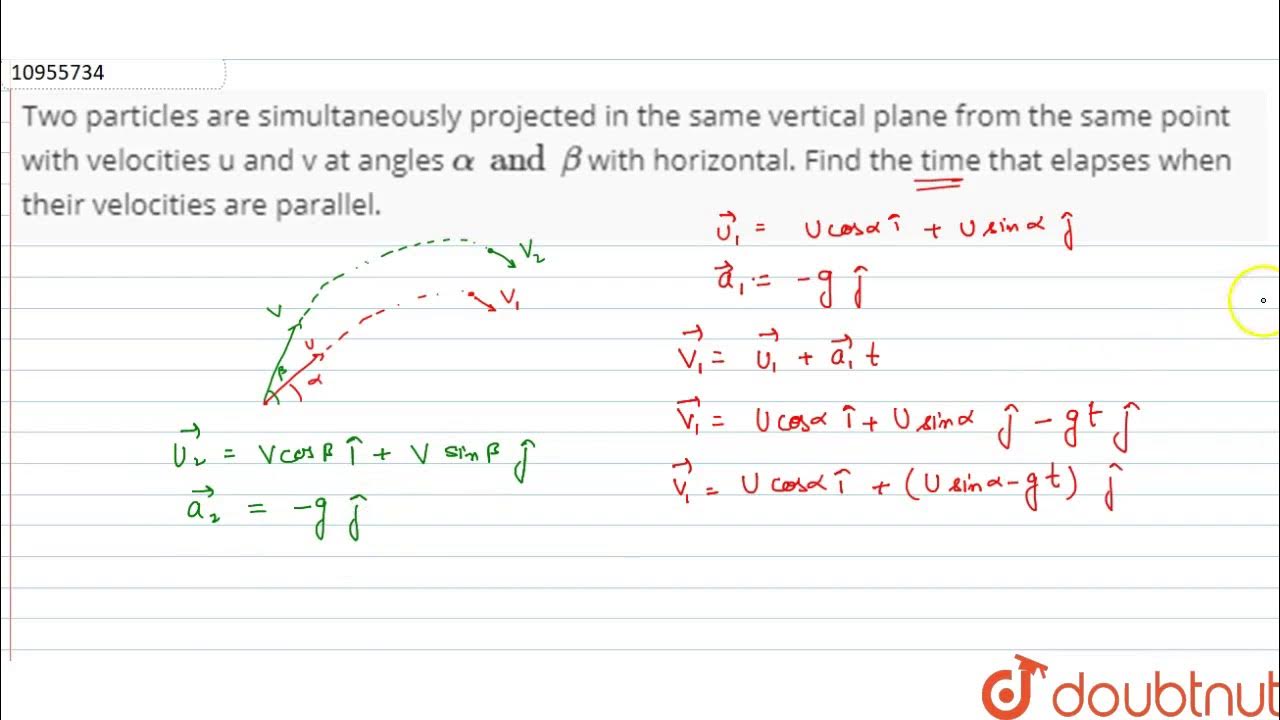 10955734
Two particles are simultaneously projected in the same vertical plane from the same point
with velocities u and v at angles α and β with horizontal. Find the time that elapses when
their velocities are parallel.
V₂
V
V₁
U
β
α
U⃗₁ = U cosα î + U sinα ĵ
a⃗₁ = -g ĵ
V⃗₁ = U⃗₁ + a⃗₁ t
V⃗₁ = U cosα î + U sinα ĵ - gt ĵ
V⃗₁ = U cosα î + (U sinα - gt) ĵ
U⃗₂ = V cosβ î + V sinβ ĵ
a⃗₂ = -g ĵ
doubtnut